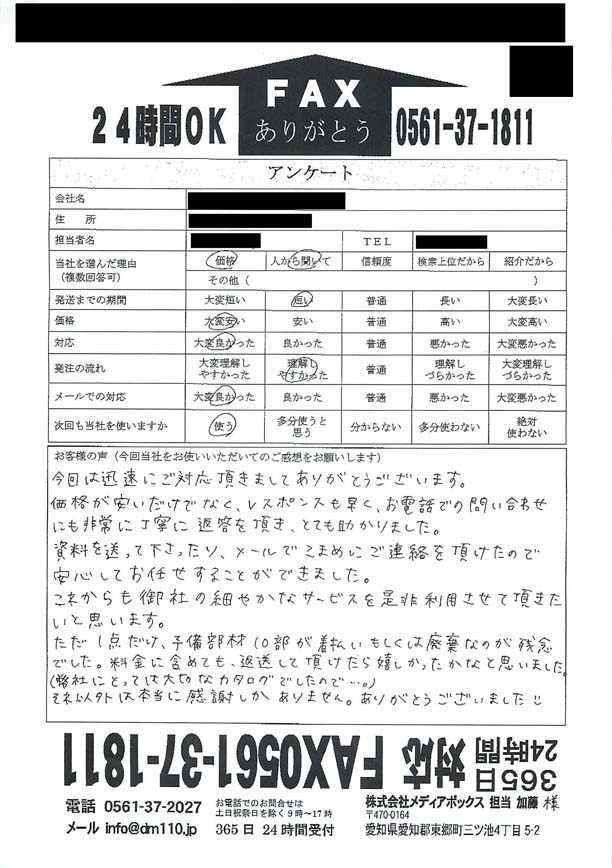 FAX
ありがとう
24時間OK
0561-37-1811
アンケート
会社名
住　所
担当者名　TEL
当社を選んだ理由（複数回答可）　価格　人から聞いて　信頼度　検索上位だから　紹介だから
その他（　）
発送までの期間　大変短い　短い　普通　長い　大変長い
価格　大変安い　安い　普通　高い　大変高い
対応　大変良かった　良かった　普通　悪かった　大変悪かった
発注の流れ　大変理解しやすかった　理解しやすかった　普通　理解しづらかった　大変理解しづらかった
メールでの対応　大変良かった　良かった　普通　悪かった　大変悪かった
次回も当社を使いますか　使う　多分使うと思う　分からない　多分使わない　絶対使わない
お客様の声（今回当社をお使いいただいてのご感想をお願いします）
今回は迅速にご対応頂きましてありがとうございます。
価格が安いだけでなく、レスポンスも早く、お電話での問い合わせ
にも非常に丁寧に返答を頂き、とても助かりました。
資料を送って下さったり、メールでこまめにご連絡を頂けたので
安心してお任せすることができました。
これからも御社の細やかなサービスを是非利用させて頂きた
いと思います。
ただ1点だけ、予備部材10部が着払いもしくは廃棄なのが残念
でした。料金に含めても、返送して頂けたら嬉しかったかなと思いました。
(弊社にとっては大切なカタログでしたので…。)
それ以外は本当に感謝しかありません。ありがとうございました
365日
24時間
対応
FAX0561-37-1811
電話　0561-37-2027
メール　info@dm110.jp
お電話でのお問合せは
土日祝祭日を除く9時～17時
365日 24時間受付
株式会社メディアボックス 担当 加藤 様
〒470-0164
愛知県愛知郡東郷町三ツ池4丁目 5-2